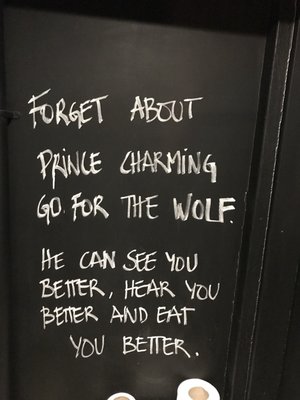 FORGET ABOUT
PRINCE CHARMING
GO FOR THE WOLF.
HE CAN SEE YOU
BETTER, HEAR YOU
BETTER AND EAT
YOU BETTER.